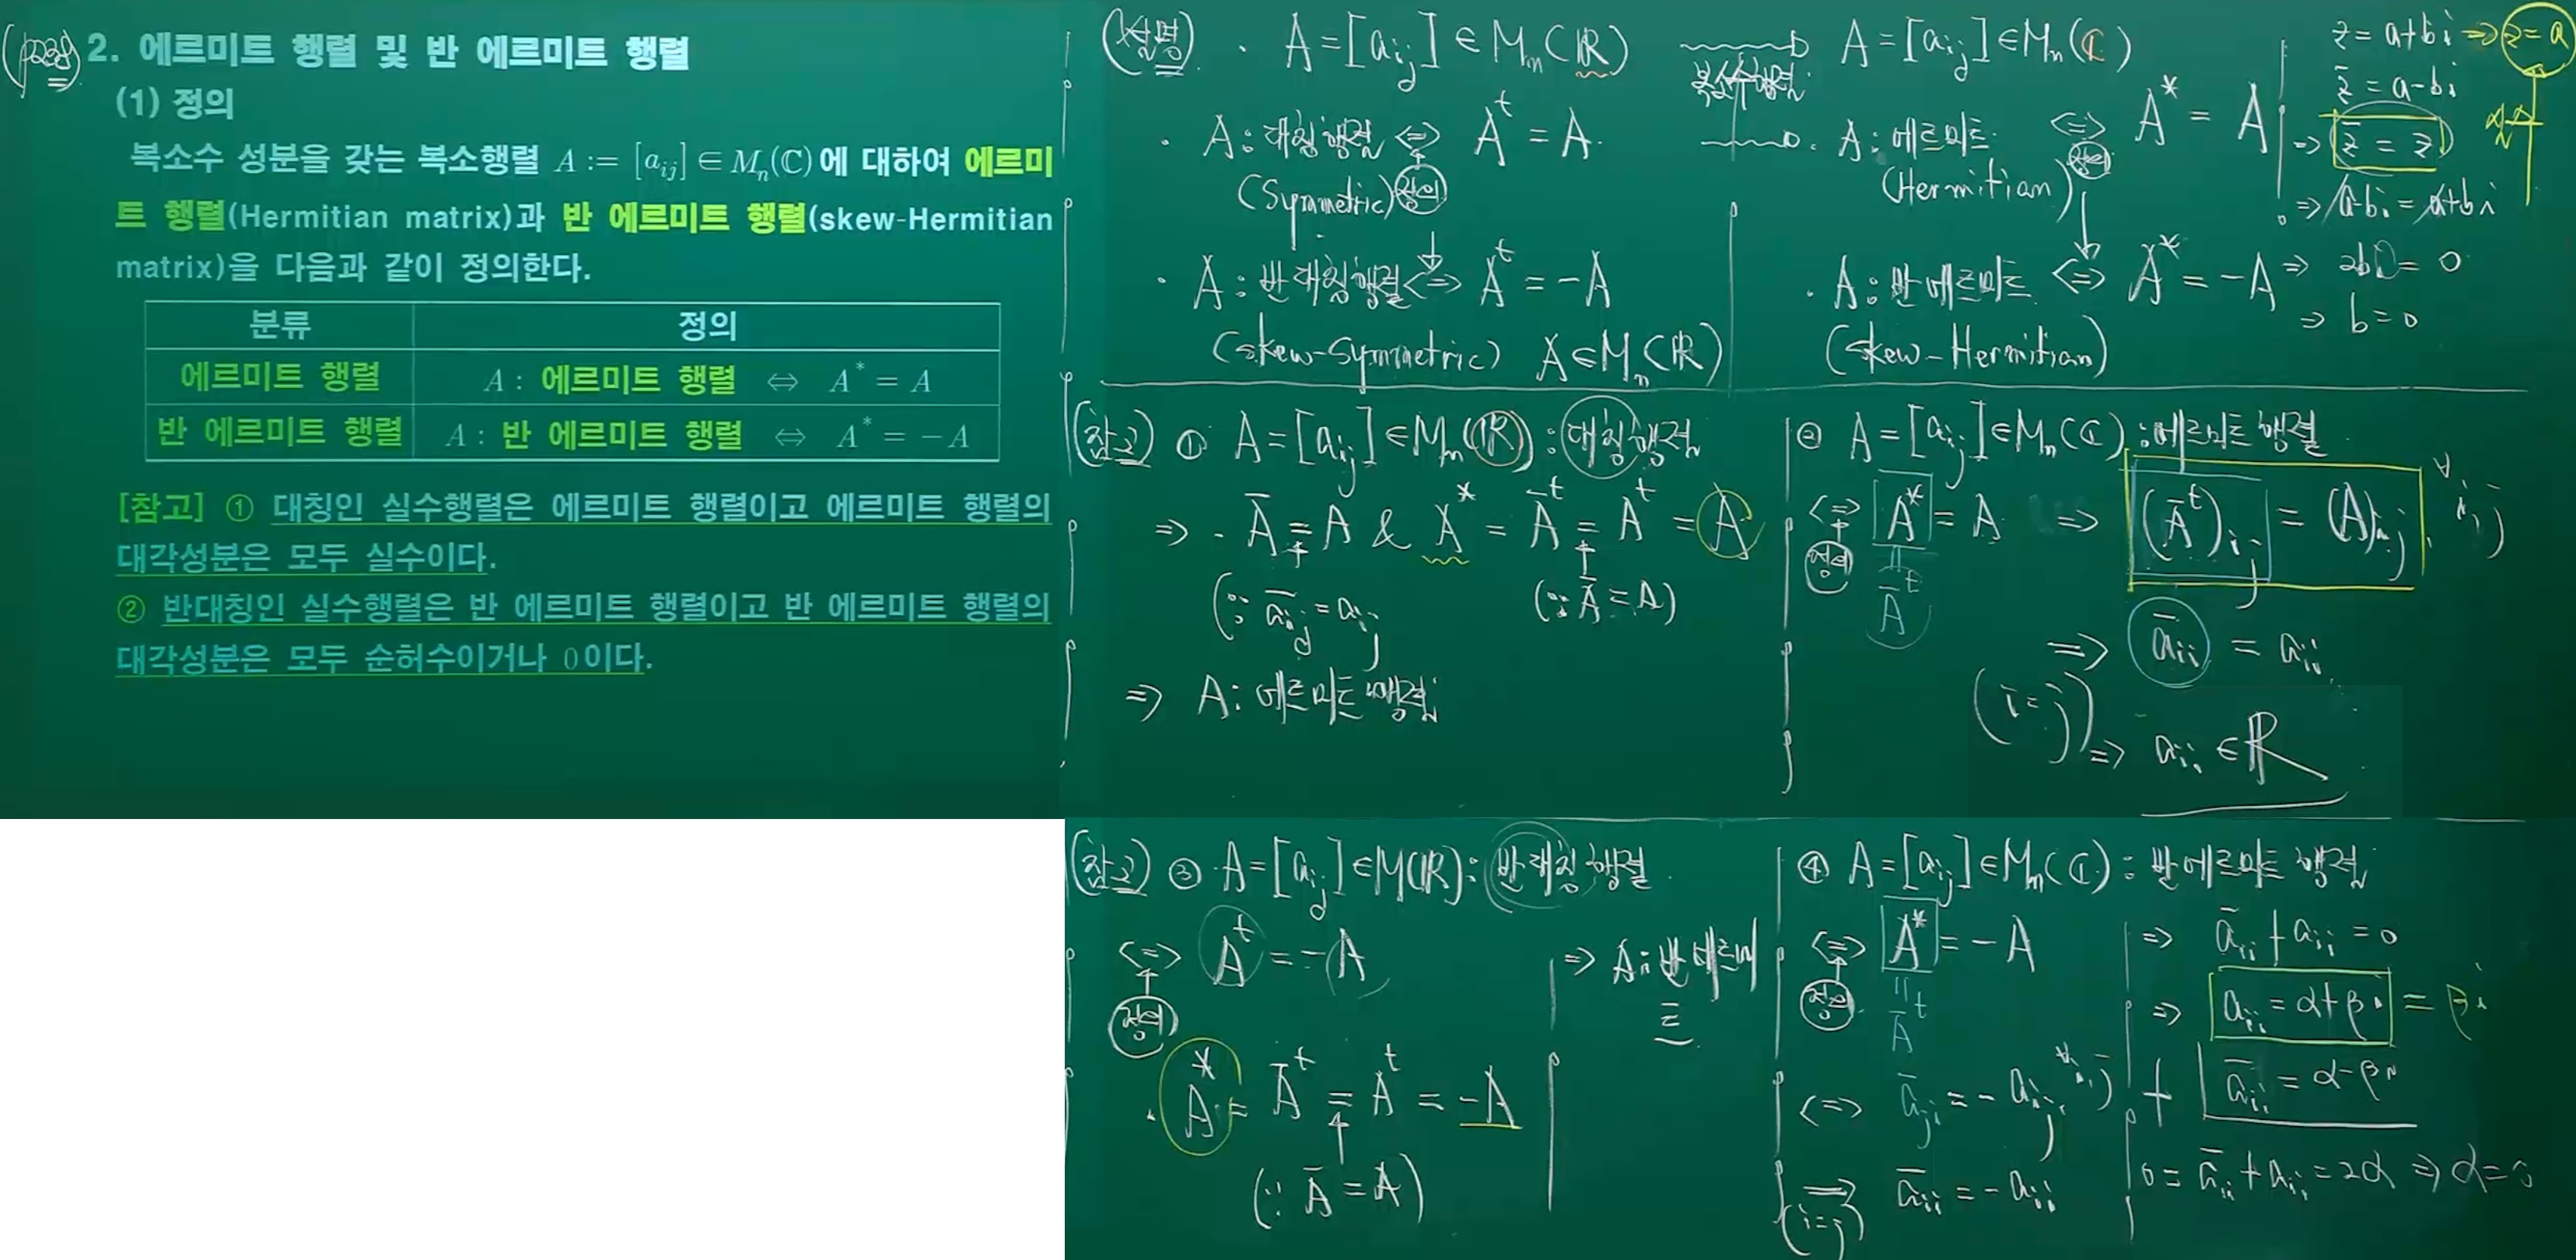 (p228) 2. 에르미트 행렬 및 반 에르미트 행렬
(1) 정의
복소수 성분을 갖는 복소행렬 A := [a_ij] ∈ M_n(ℂ)에 대하여 에르미
트 행렬(Hermitian matrix)과 반 에르미트 행렬(skew-Hermitian
matrix)을 다음과 같이 정의한다.
분류 정의
에르미트 행렬 A : 에르미트 행렬 ⇔ A* = A
반 에르미트 행렬 A : 반 에르미트 행렬 ⇔ A* = -A
[참고] ① 대칭인 실수행렬은 에르미트 행렬이고 에르미트 행렬의
대각성분은 모두 실수이다.
② 반대칭인 실수행렬은 반 에르미트 행렬이고 반 에르미트 행렬의
대각성분은 모두 순허수이거나 0이다.
(설명) · A = [a_ij] ∈ M_n(ℝ)
· A : 대칭행렬 ⇔ A^t = A
(Symmetric) 정의
· A : 반대칭행렬 ⇔ A^t = -A
(skew-Symmetric) A ∈ M_n(ℝ)
A = [a_ij] ∈ M_n(ℂ)
· A : 에르미트 ⇔ A* = A
(Hermitian) 정의
· A : 반에르미트 ⇔ A* = -A
(skew-Hermitian)
z = a+bi ⇒ z = a
z̄ = a-bi
⇒ z̄ = z
⇒ a-bi = a+bi
⇒ 2bi = 0
⇒ b = 0
(참고) ① A = [a_ij] ∈ M_n(ℝ) : 대칭행렬
⇒ · Ā = A & A* = Ā^t = A^t = A
(∵ ā_ij = a_ij) (∵ Ā = A)
⇒ A : 에르미트행렬
② A = [a_ij] ∈ M_n(ℂ) : 에르미트 행렬
⇔ A* = A ⇒ (Ā^t)_ij = (A)_ij, ∀i,j
정의 = Ā^t
⇒ ā_ii = a_ii
(i=j)
⇒ a_ii ∈ ℝ
(참고) ③ · A = [a_ij] ∈ M(ℝ) : 반대칭행렬
⇔ A^t = -A
정의
· A* = Ā^t = A^t = -A
(∵ Ā = A)
⇒ A : 반에르미
트
④ A = [a_ij] ∈ M_n(ℂ) : 반에르미트 행렬
⇔ A* = -A
정의 = Ā^t
⇔ ā_ji = -a_ij, ∀i,j
⇒ ā_ii = -a_ii
(i=j)
⇒ ā_ii + a_ii = 0
⇒ a_ii = α+βi = βi
+ ā_ii = α-βi
0 = ā_ii + a_ii = 2α ⇒ α = 0